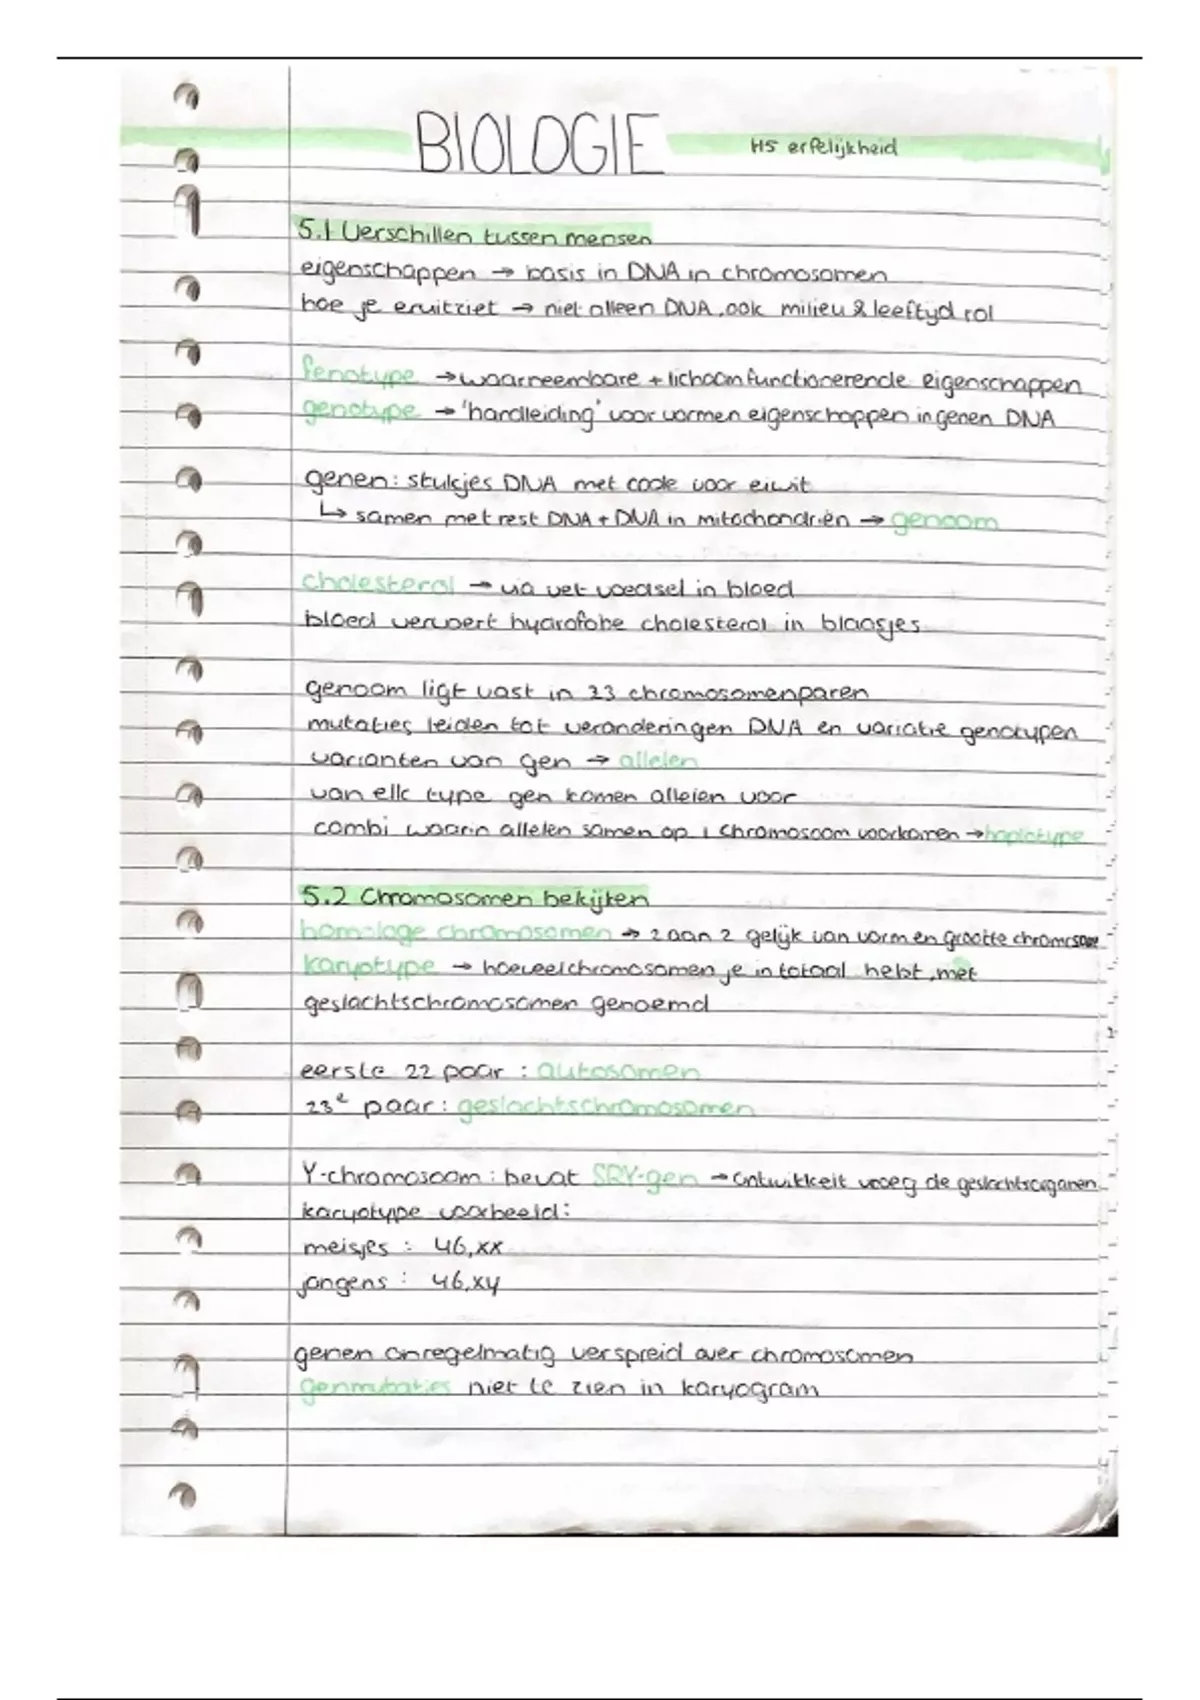 BIOLOGIE H5 erfelijkheid
5.1 Verschillen tussen mensen
eigenschappen → basis in DNA in chromosomen
hoe je eruitziet → niet alleen DNA, ook milieu & leeftijd rol
fenotype → waarneembare + lichaamfunctionerende eigenschappen
genotype → 'handleiding' voor vormen eigenschappen in genen DNA
genen: stukjes DNA met code voor eiwit
↳ samen met rest DNA + DNA in mitochondriën → genoom
cholesterol → via vet voedsel in bloed
bloed vervoert hydrofobe cholesterol in blaasjes
genoom ligt vast in 23 chromosomenparen
mutaties leiden tot veranderingen DNA en variatie genotypen
varianten van gen → allelen
van elk type gen komen allelen voor
combi waarin allelen samen op 1 chromosoom voorkomen → haplotype
5.2 Chromosomen bekijken
homologe chromosomen → 2 aan 2 gelijk van vorm en grootte chromosoom
karyotype → hoeveel chromosomen je in totaal hebt, met
geslachtschromosomen genoemd
eerste 22 paar : autosomen
23e paar : geslachtschromosomen
Y-chromosoom : bevat SRY-gen → ontwikkelt vroeg de geslachtsorganen
karyotype voorbeeld :
meisjes : 46,xx
jongens : 46,xy
genen onregelmatig verspreid over chromosomen
genmutaties niet te zien in karyogram